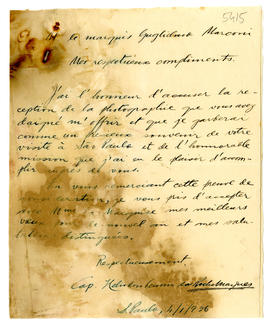 5415
M le marquis Guglielmo Marconi
Mes respectueux compliments.
J'ai l'honneur d'accuser la ré-
ception de la photographie que vous avez
daigné m'offrir et que je garderai
comme un précieux souvenir de votre
visite à São Paulo et de l'honorable
mission que j'ai eu le plaisir d'accom-
plir auprès de vous.
En vous remerciant cette preuve de
je vous pris d'accepter
avec Mme la Marquise mes meilleurs
voeux pour le nouvel an et mes salu-
tations distinguées.
Respectueusement
Cap.
S. Paulo, 4/1/936